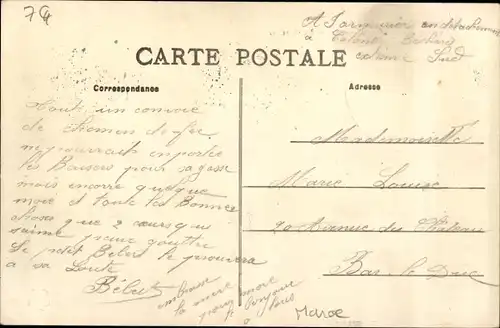 74
A Tournier en détachement
à
colonne Sud
CARTE POSTALE
Correspondance
Adresse
Tout un convoie
de chemin de fer
ne pourrait emporter
les Baisers pour sa gosse
mais encore quelque
mois et toute les Bonnes
choses que 2 cœurs qui
saime peuve goutter
Le petit Bébert le prouvera
a sa Loute
Bébert
embrasse
la mere
pour moi
et bonjour
a tous
Mademoiselle
Marie Louise
70 Avenue du Château
Bar le Duc
Maroc